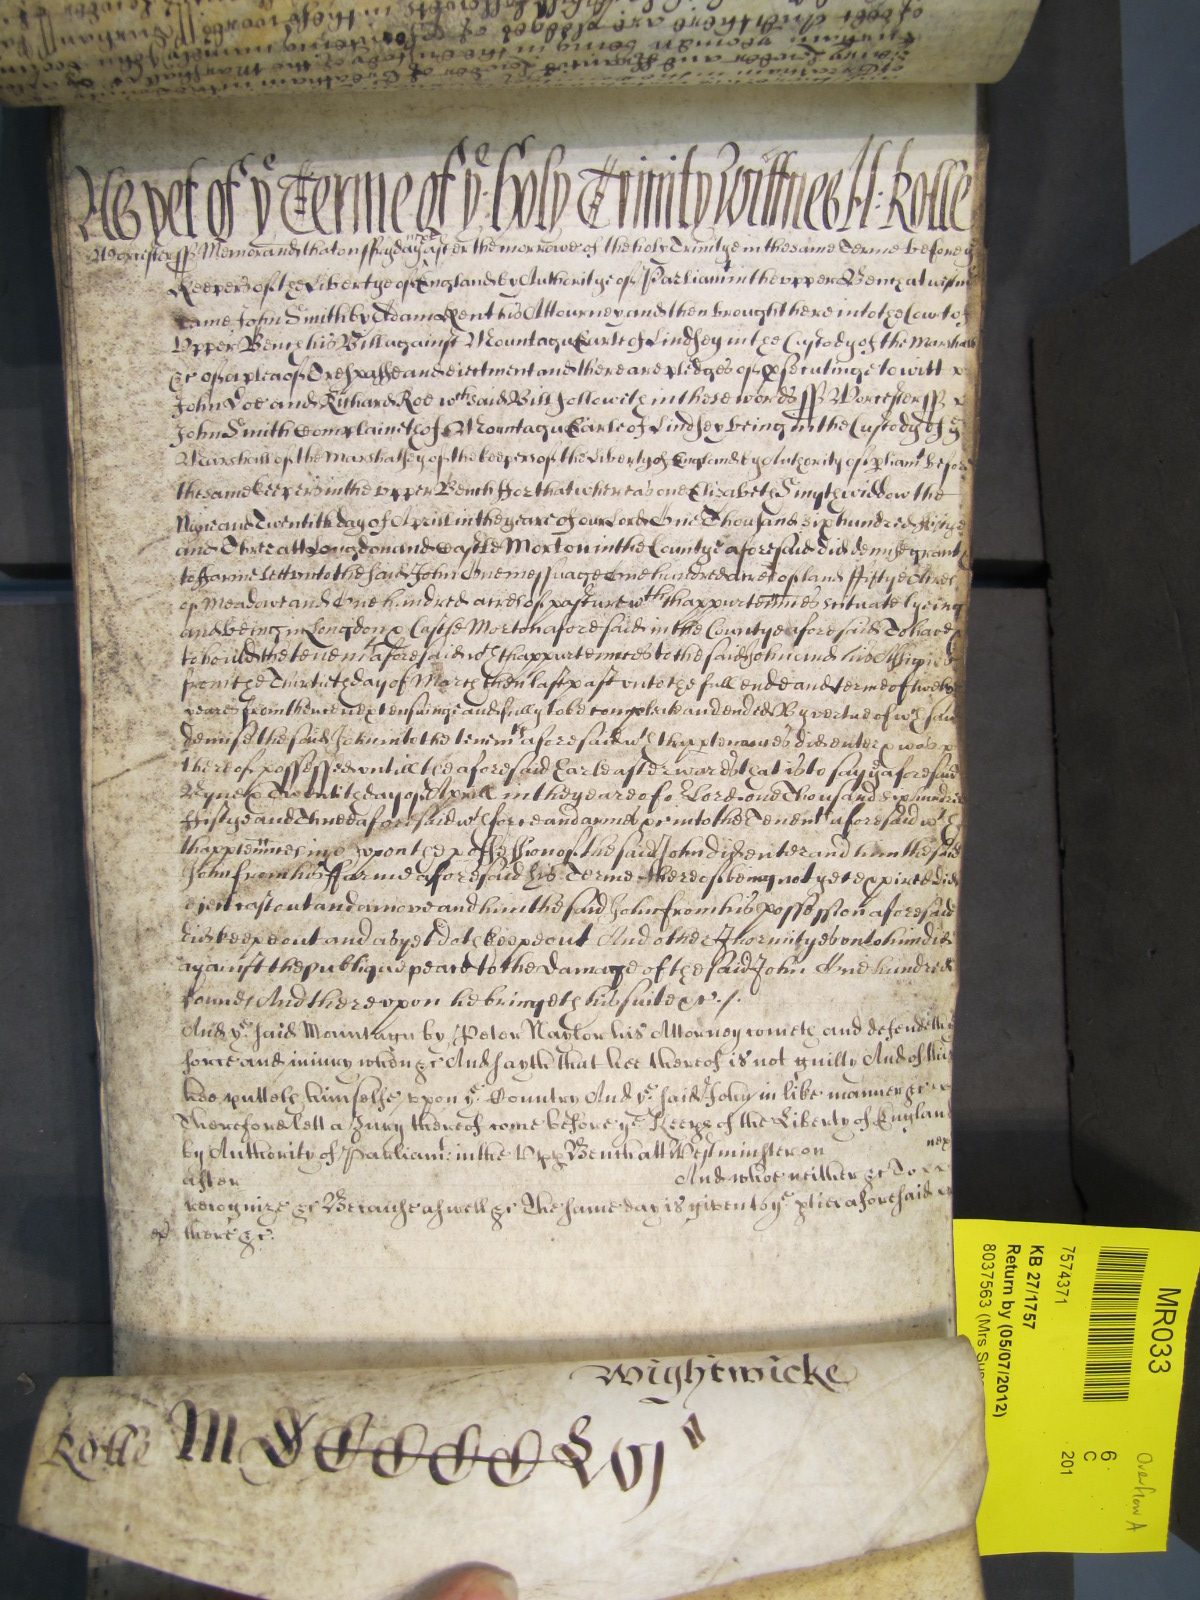 As yet of yͤ Terme of yͤ holy Trinity Wittnes H: Rolle
Worcester ss Memorand that on ffryday next after the morrowe of the holy Trinitye in the same Terme before yͤ
Keepers of the Libertye of England by Authoritye of Parliamᵗ in the vpper Bench at Westm
came John Smith by Adam Kent his Attourney and then brought here into the Court of
Vpper Bench his Bill against Mountagu Earle of Lindsey in the Custody of the Marshall
&c of a plea of Trespasse and eiectment and there are pledges of psecutinge to witt
John Doe and Richard Roe wᶜʰ said Bill followith in these words ss Worcester ss
John Smith Complaineth of Mountagu Earle of Lindsey being in the Custody of yͤ
Marshall of the Marshalsey of the keepers of the Liberty of England by Authority of pliamᵗ before
the same keepers in the vpper Bench ffor that whereas one Elizabeth Smyth widdow the
Nyne and Twentith day of Aprill in the yeare of our Lord One Thousand six hundred fiftye
and Three att Longdon and Castle Morton in the Countye aforesaid did demise grant
to ffarme lett vnto the said John One messuage One hundred acres of land ffiftye Acres
of Meadowe and One hundred acres of pasture wᵗʰ thappurtennces scituate lyeing
and being in Longdon & Castle Morton aforesaid in the Countye aforesaid To have
to hould the tenemᵗˢ aforesaid wᵗʰ thappurtennces to the said John and his Assignes
from the Thirtieth day of March then last past vnto the full ende and terme of twelve
yeares from thence next ensuinge and fully to be compleate and ended By vertue of wᶜʰ said
demise the said John into the tenemᵗˢ aforesaid wᵗʰ thapptennces did enter & was
thereof possessed vntill the aforesaid Earle afterwards that is to say yͤ aforesaid
Nyne & Twentith day of Aprill in the yeare of oʳ Lord one Thousand six hundred
fiftye and Three aforesaid wᵗʰ force and armes &c into the Tenemᵗˢ aforesaid wᵗʰ
thapptennces in & vpon the possession of the said John did enter and him the said
John from his ffarme aforesaid his Terme thereof being not yet expired did
eiect cast out and amove and him the said John from his possession aforesaid
did keepe out and as yet doth keepe out And other Enormityes vnto him did
against the publique peace to the damage of the said John One hundred
pounds And therevpon he bringeth his suite &c ./.
And yͤ said Mountagu by Peter Naylor his Attorney cometh and defendeth yͤ
force and iniury when &c And sayth that hee thereof is not guilty And of this
hee putteth himselfe vpon yͤ Country And yͤ said John in like manner &c
Therefore lett a Jury thereof come before yͤ Keeps of the Liberty of England
by Authority of Parliamᵗ in the Vpp Bench att Westminster on nex
after And who neither &c To
recognize &c Because aswell &c The same day is given to yͤ pties aforesaid
there &c.
Wightwicke
Rolle M DCCCCLVJ
MR033
7574371
KB 27/1757
Return by (05/07/2012)
8037563 (Mrs
6
C
201
Overflow A